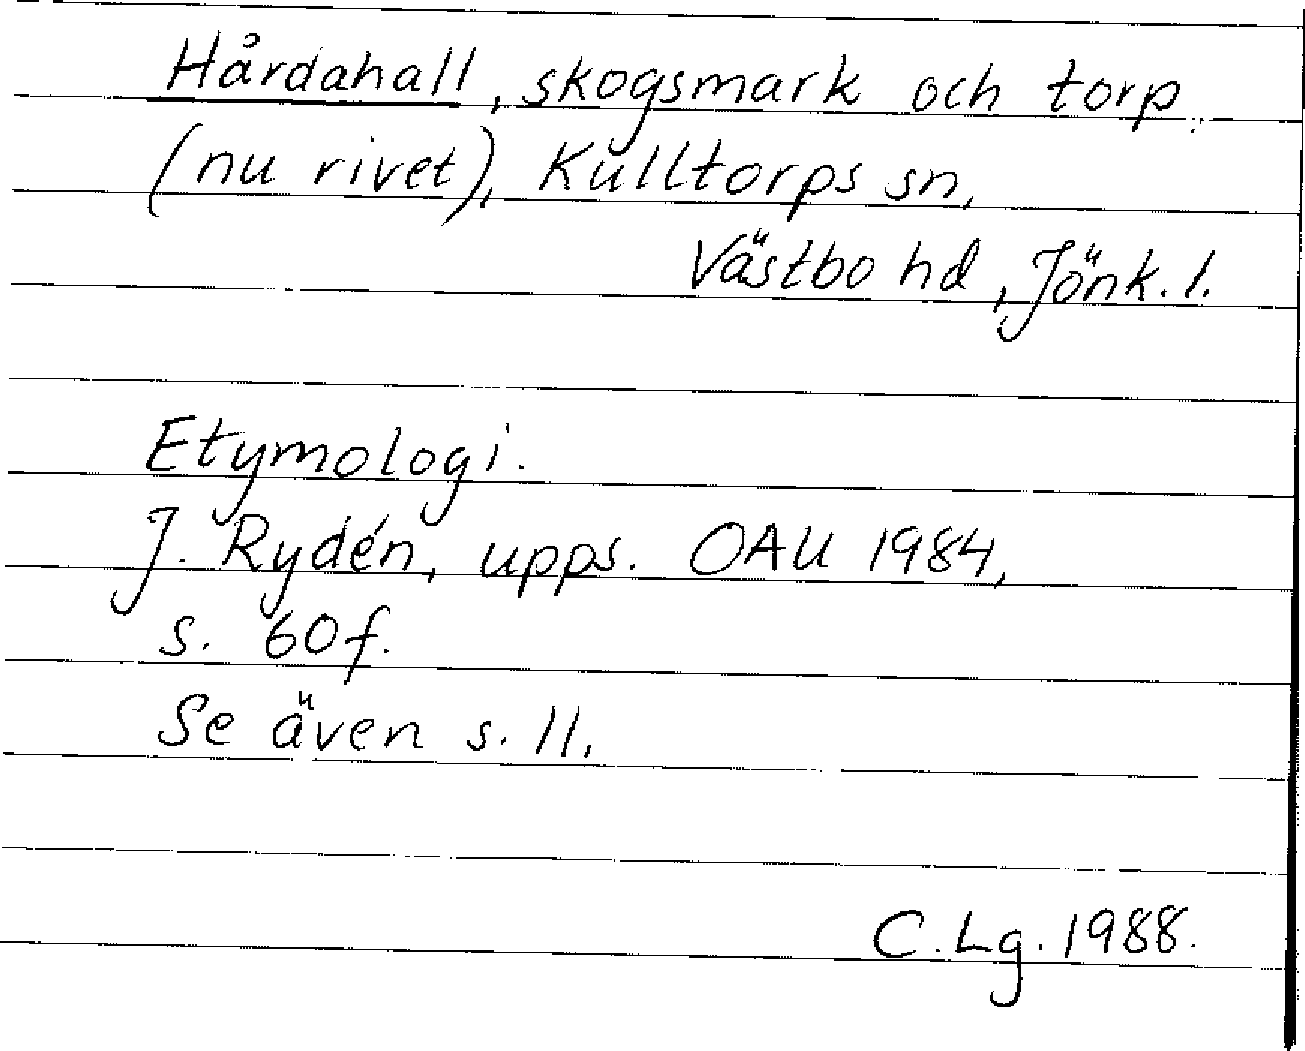 Hårdahall, skogsmark och torp
(nu rivet), Kulltorps sn,
Västbo hd, Jönk. l.
Etymologi.
J. Rydén, upps. OAU 1984,
s. 60f.
Se även s. 11.
C. Lg. 1988.